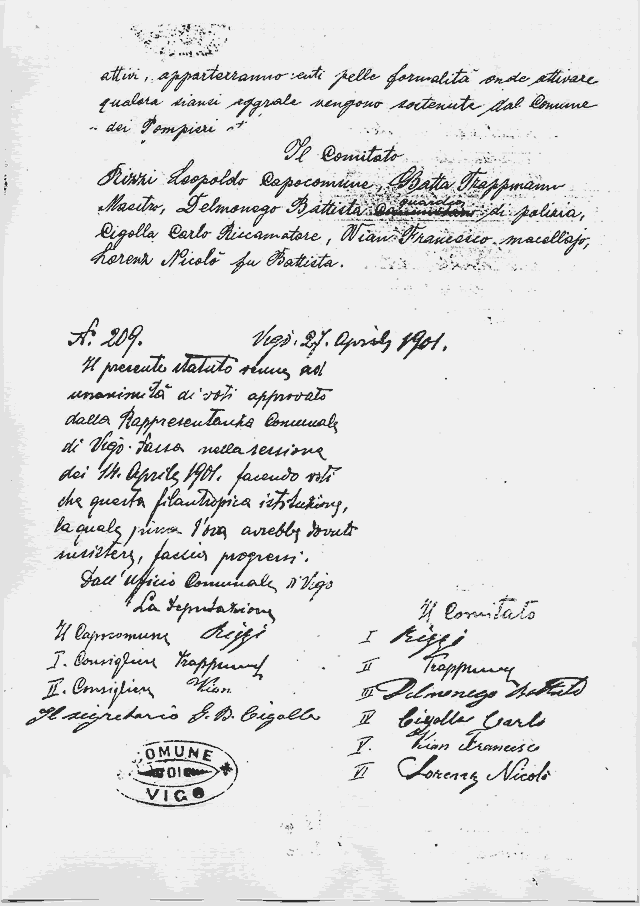 attivi, apparterranno enti pelle formalità onde attivare
qualora siansi eggrale vengono sostenute dal Comune
dei Pompieri
Il Comitato
Rizzi Leopoldo Capocomune, Batta Trappmann
Maestro, Delmonego Battista guardia di polizia,
Cigolla Carlo Riccamatore, Vian Francesco macellajo,
Lorenz Nicolò fu Battista.
N. 209. Vigo. 27. Aprile 1901.
Il presente statuto venne ad
unanimità di voti approvato
dalla Rappresentanza Comunale
di Vigo-Fassa nella sessione
dei 14. Aprile 1901. facendo voti
che questa filantropica istituzione,
la quale prima d'ora avrebbe dovuto
esistere, faccia progressi.
Dall'Ufficio Comunale di Vigo
La Deputazione
Il Capocomune Rizzi
I. Consigliere Trappmann
II. Consigliere Vian
Il segretario G. B. Cigolla
Il Comitato
I Rizzi
II Trappmann
III Delmonego Battista
IV Cigolla Carlo
V. Vian Francesco
VI Lorenz Nicolò
COMUNE
DI
VIGO